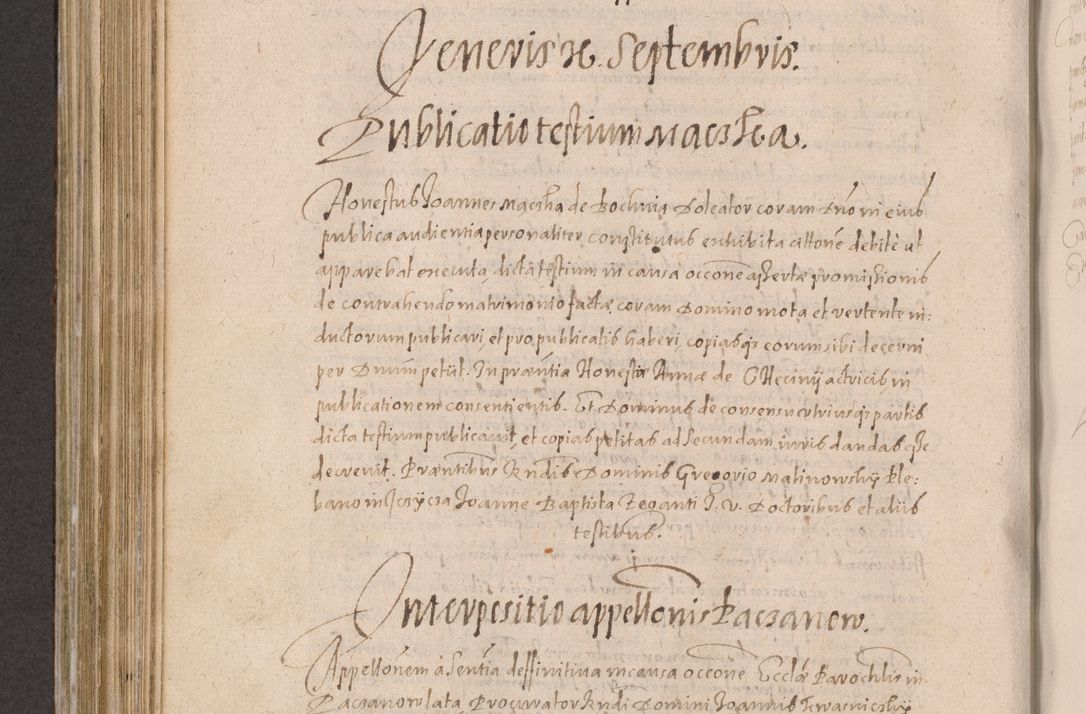 Veneris 20. Septembris.
Publicatio testium Maczka.
Honestus Joannes Maczka de Bochnia Doleator coram Dno in eius
publica audientia personaliter constitutus exhibita cittone debitè ut
apparebat executa dicta testium in causa occone assertæ promissionis
de contrahendo matrimonio factæ coram Domino mota et vertente in:
ductorum publicari et pro publicatis haberi copiasq; eorum sibi decerni
per Dnum petiit. In præntia Honestæ Annæ de Checinÿ actricis in
publicationem consentientis. Et Dominus de consensu utriusq; partis
dicta testium publicavit et copias petitas ad secundam iuris dandas esse
decrevit. Præntibus Rndis Dominis Gregorio Malinowskÿ Ple:
bano in Joanne Baptista Zeganti J. V. Doctoribus et aliis
testibus.
Interpositio appellonis Paczanow.
Appellonem à sentia deffinitiva in causa occone Ecclæ Parochlis in
Paczanow lata Procurator Rndi Domini Joannis Kwasnickÿ